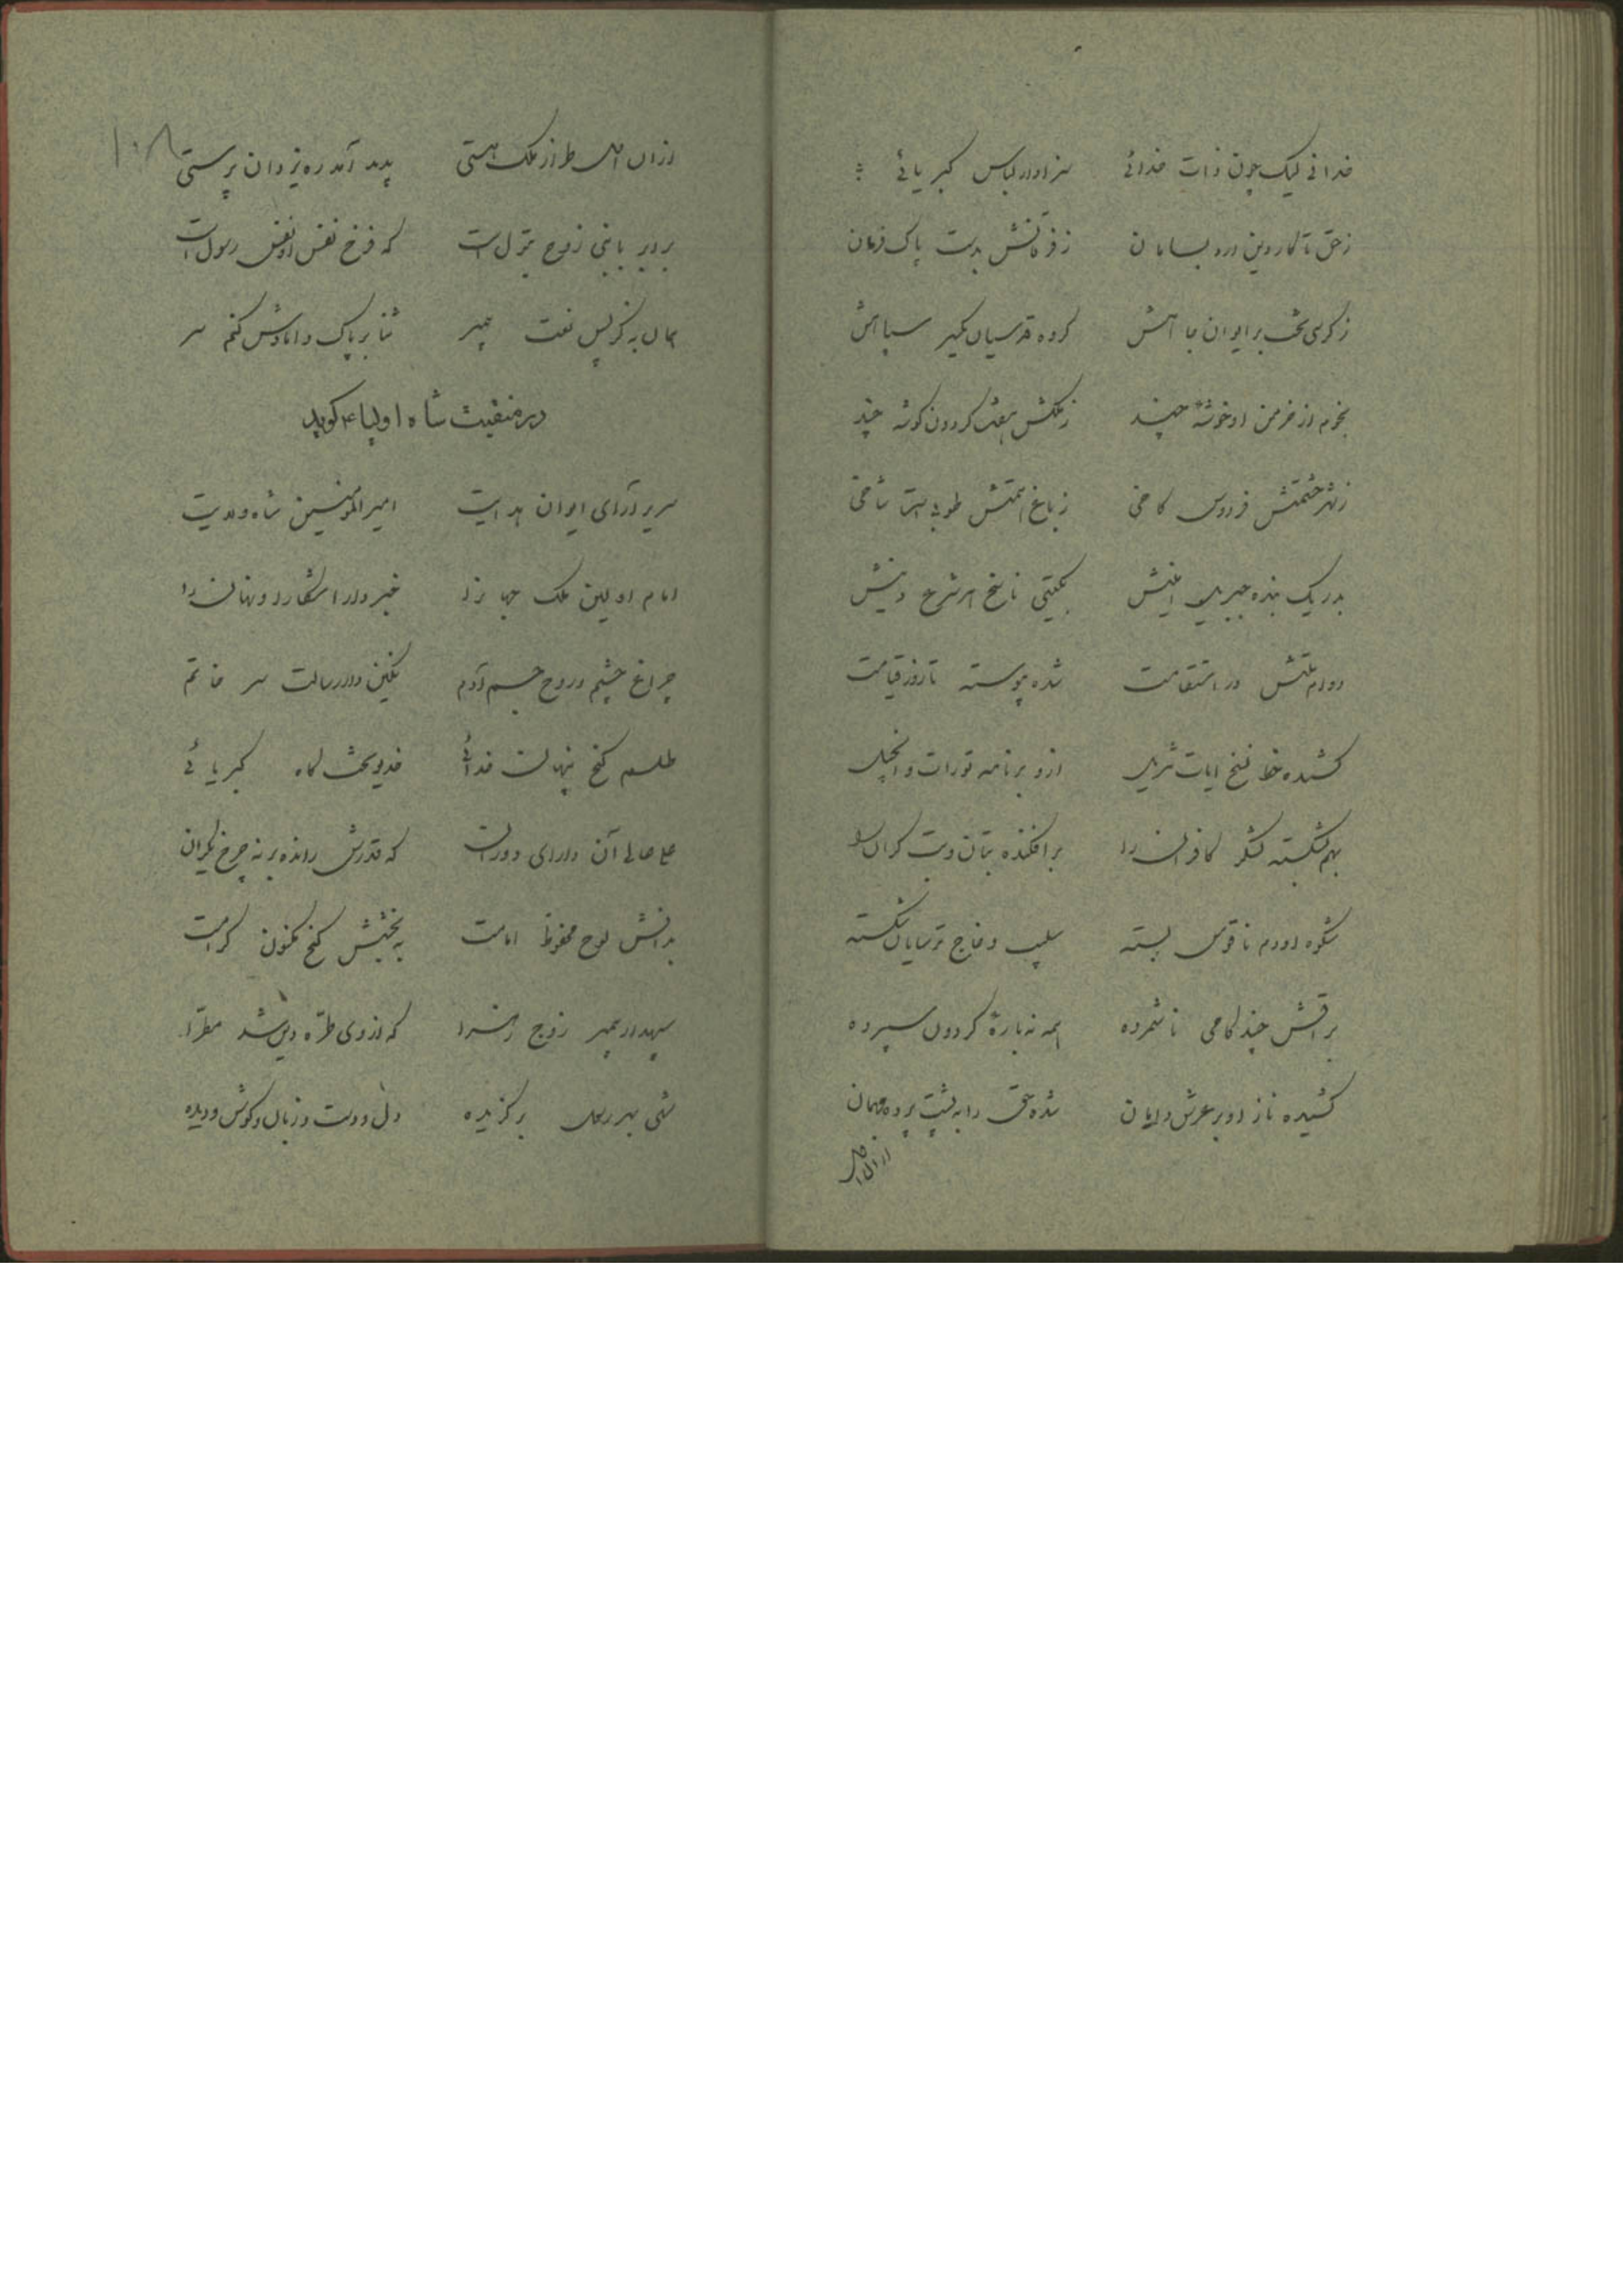 خدا نی لیک چون ذات خدائی سزاوار لباس کبریائی
ز حق تا کار دین دارد بسامان ز فرقانش بدست پاک فرمان
ز کرسی تخت بر ایوان جاهش گروه قدسیان یکسر سپاهش
بخرم از خرمن او خوشهٔ چند ز ملکش هفت گردون گوشه چند
ز شهر حشمتش فردوس کاخی ز باغ همتش طوبی است شاخی
بدر یک بنده جبریل امینش بگیتی ناسخ هر شرع دینش
دوام ملتش در استقامت شده پیوسته تا روز قیامت
کشیده خط نسخ ایات تنزیل ازو بر نامه تورات و انجیل
بهم بشکسته لشکر کافران را برافکنده بتان و بت گران را
شکوه او دم ناقوس بسته سلیب و خاج ترسایان شکسته
براقش چند گامی ناشمرده همه نه بارهٔ گردون سپرده
کشیده ناز او بر عرش دامان شده حق را به پشت پرده مهمان
ازان اصل
ازان اصل طراز ملک هستی پدید آمد ره یزدان پرستی
برادر با نبی زوج بتول است که فرخ نفس او نفس رسول است
همان به کز پس نعت پیمبر ثنا بر پاک دامادش کنم سر
در منقبت شاه اولیا ع گوید
سریر آرای ایوان هدایت امیر المؤمنین شاه ولایت
امام اولین ملک جهانرا خبر دار اشکارا و نهان را
چراغ چشم و روح جسم آدم نگین دار رسالت سر خاتم
طلسم گنج پنهان خدائی خدیو تخت گاه کبریائی
علی عالی آن دارای دوران که قدرش رانده بر نه چرخ یکران
بدانش لوح محفوظ امامت به بخشش گنج مکنون کرامت
سپهدار پیمبر زوج زهرا که از وی طره دین شد مطرا
شهی بهر رسل برگزیده دل و دست و زبان و گوش و دیده